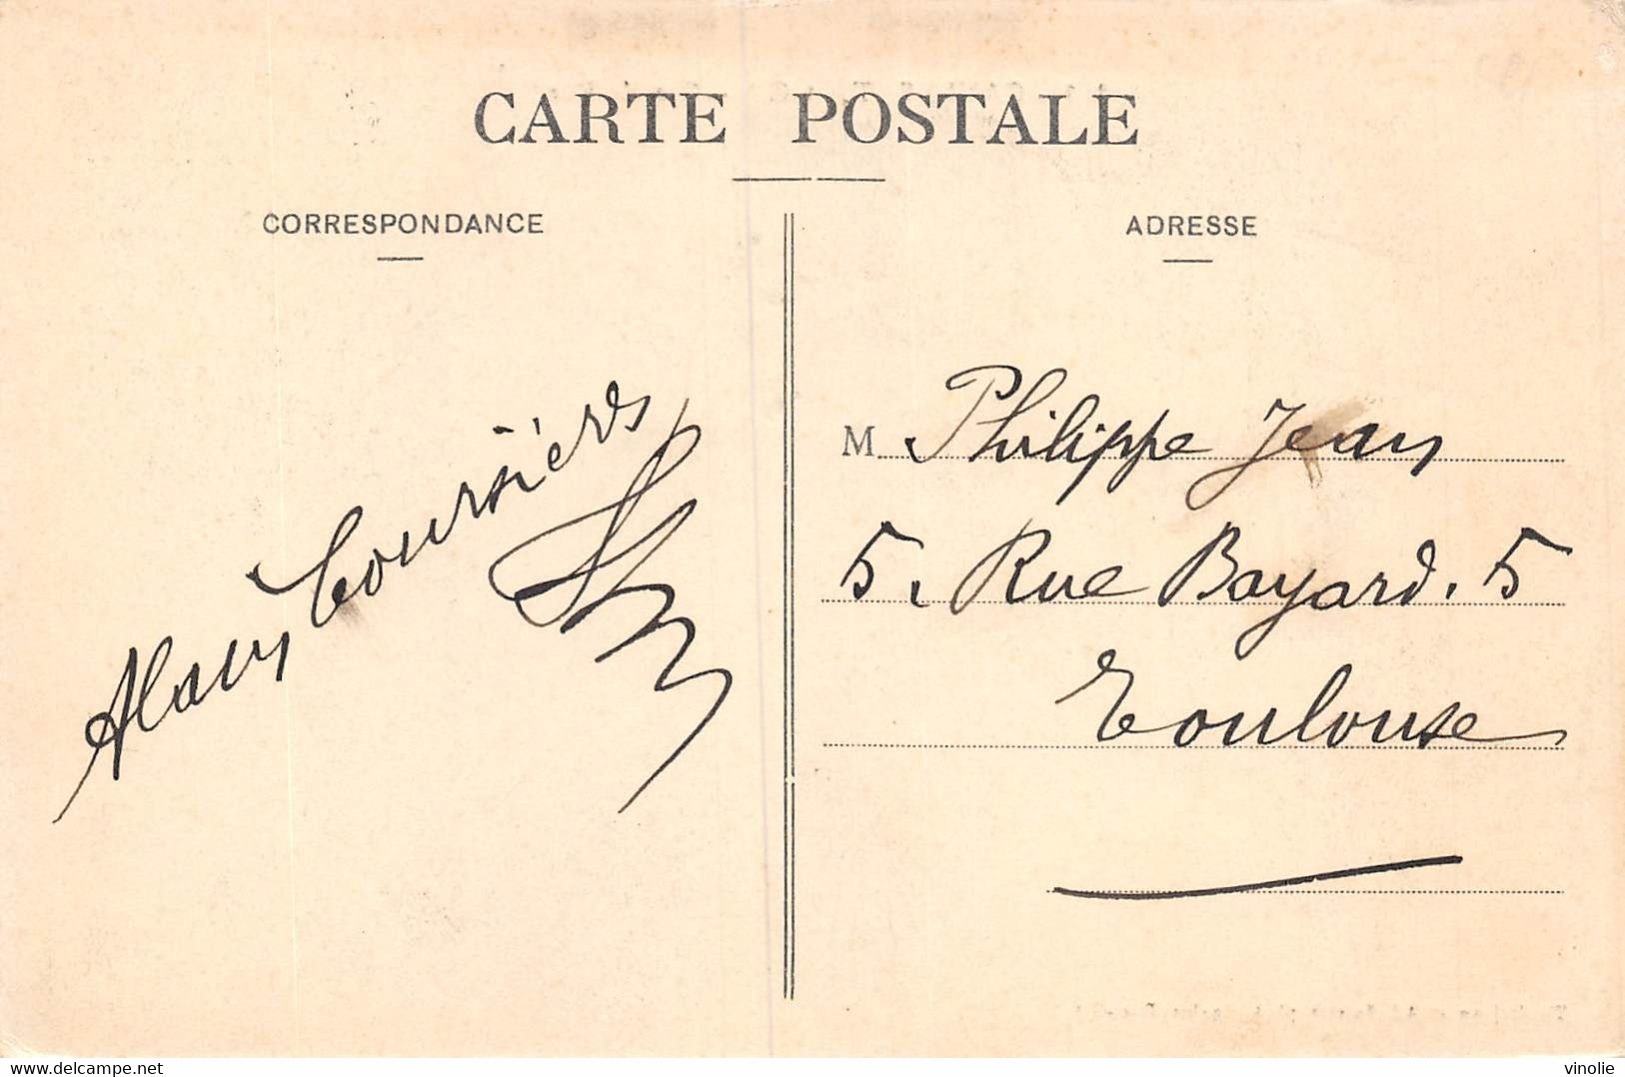 CARTE POSTALE
CORRESPONDANCE
ADRESSE
Alain Coursières
M Philippe Jean
5, Rue Bayard, 5
Toulouse
delcampe.net
vinolie